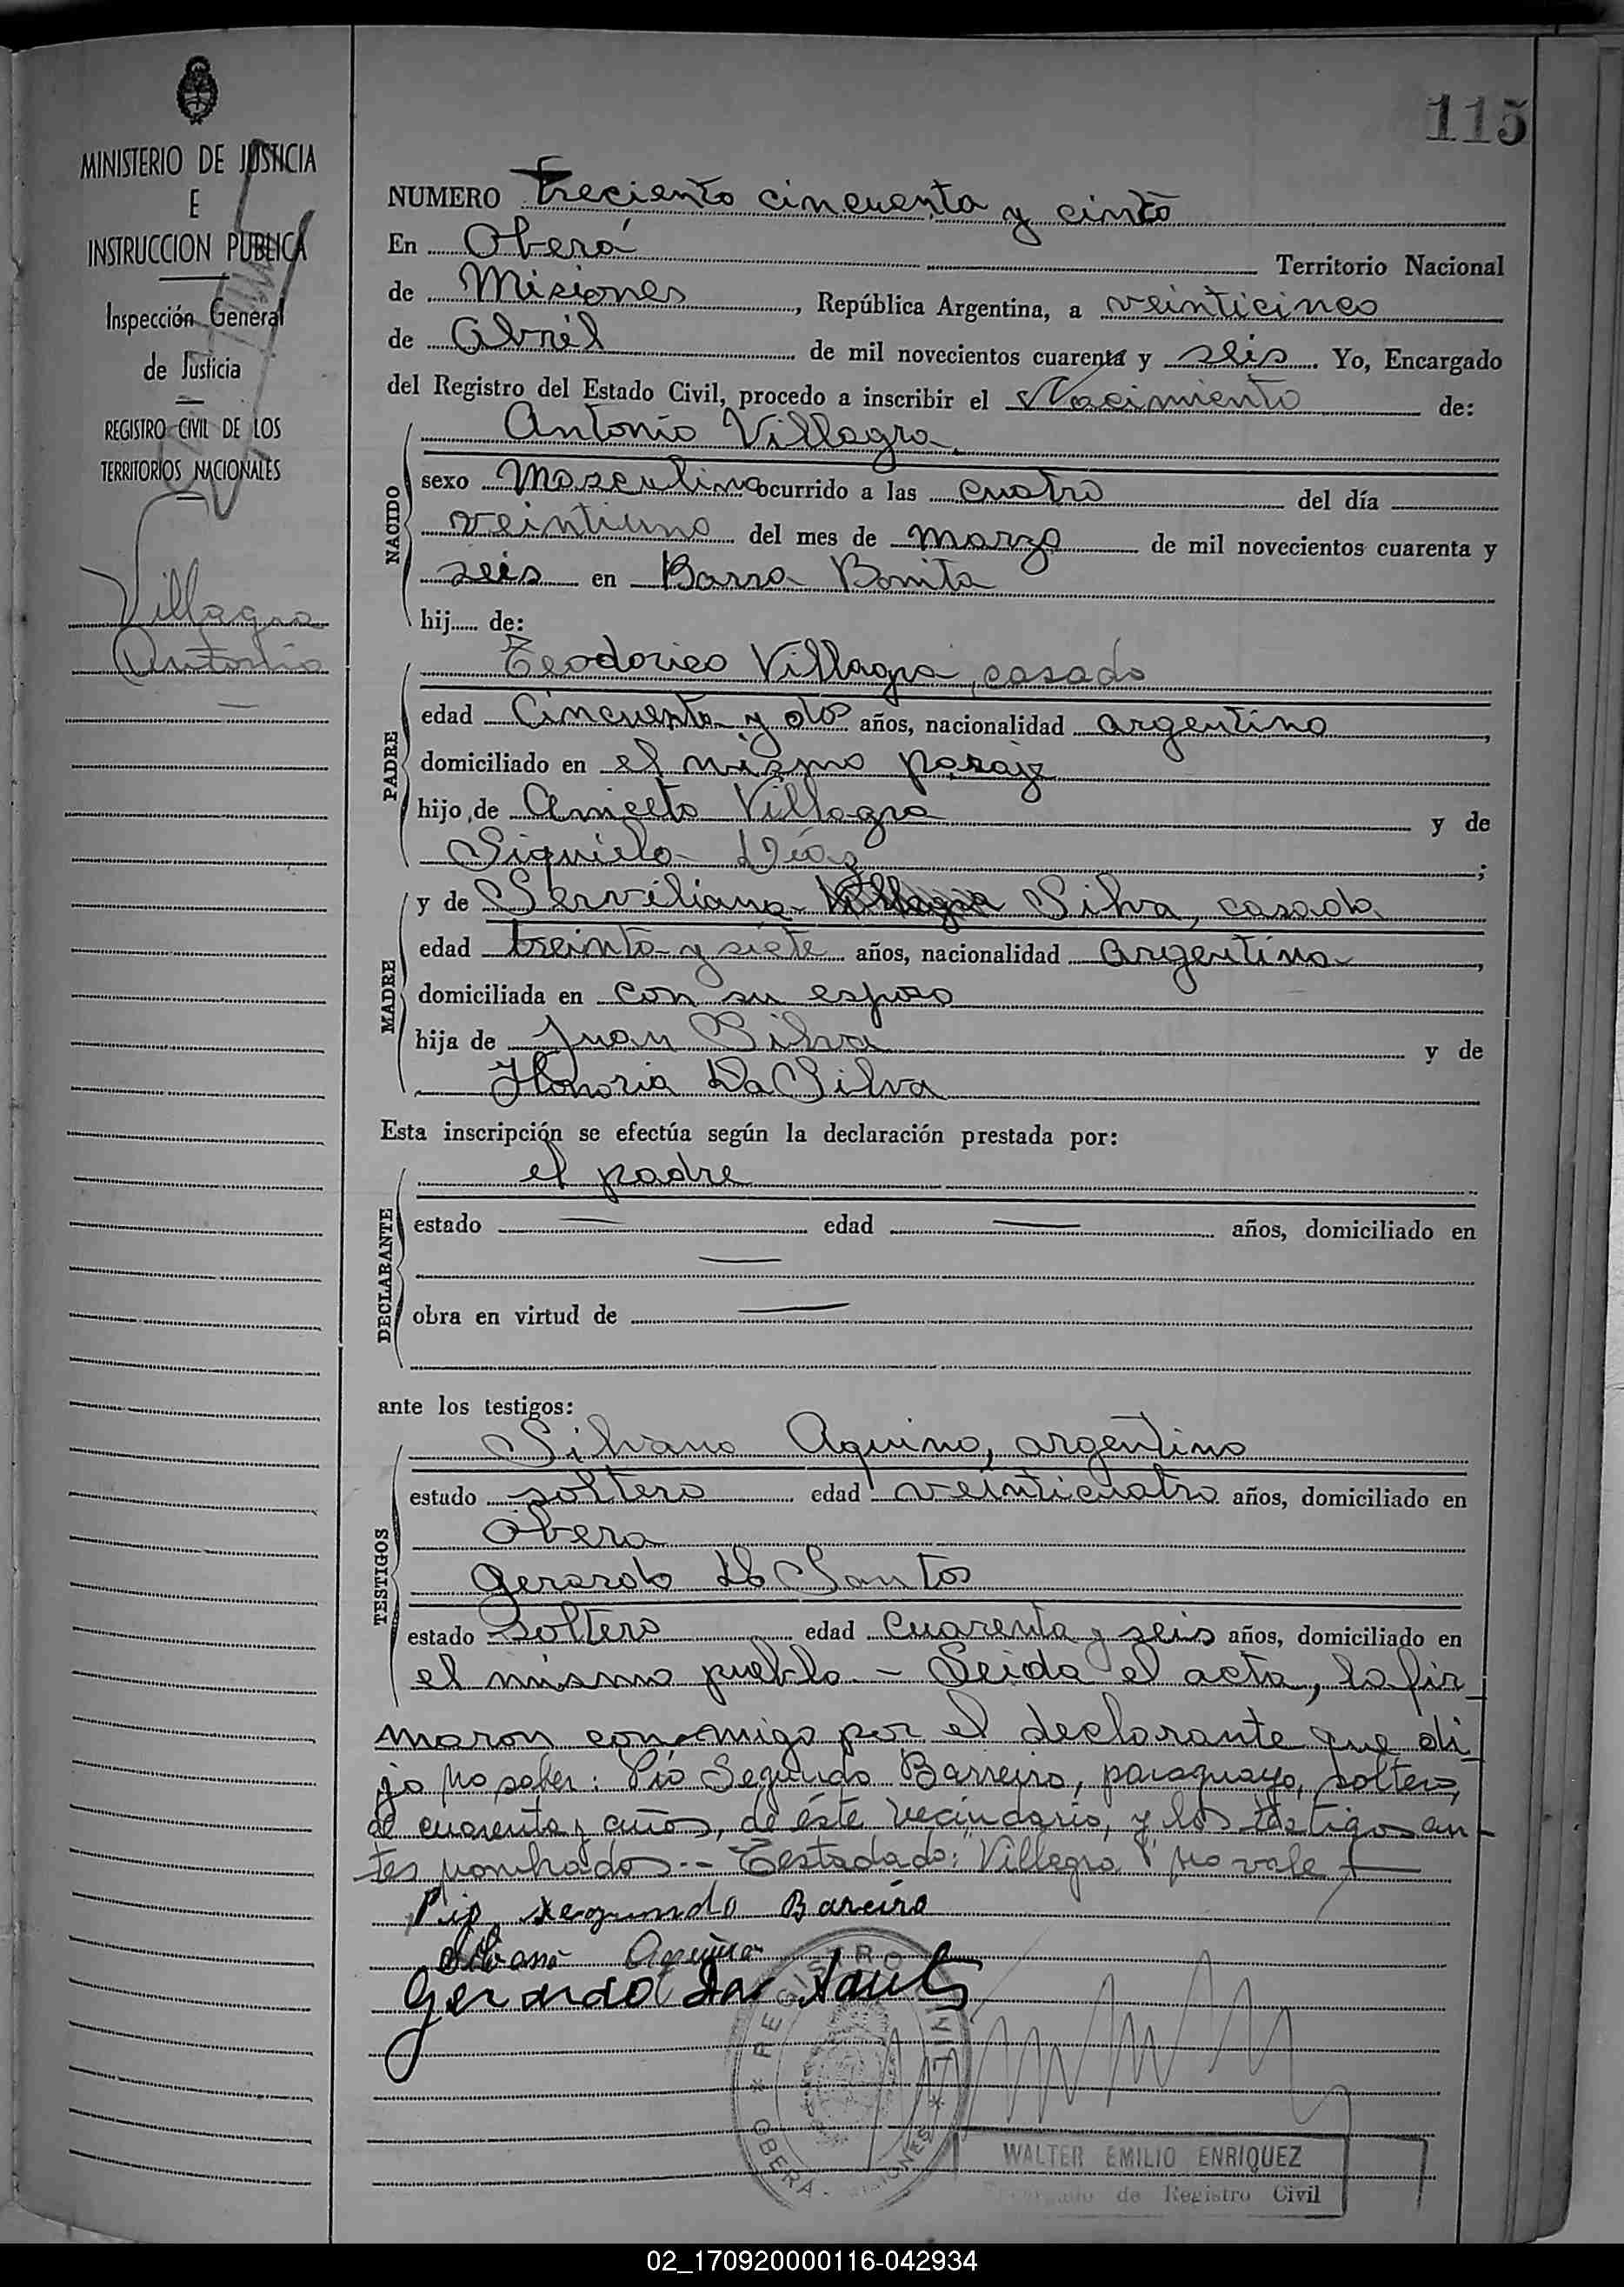 115
MINISTERIO DE JUSTICIA
E
INSTRUCCION PUBLICA
Inspección General
de Justicia
REGISTRO CIVIL DE LOS
TERRITORIOS NACIONALES
Villagra
Antonio
NUMERO treciento cincuenta y cinco
En Oberá Territorio Nacional
de Misiones, República Argentina, a veinticinco
de Abril de mil novecientos cuarenta y seis. Yo, Encargado
del Registro del Estado Civil, procedo a inscribir el Nacimiento de:
NACIDO
Antonio Villagra
sexo Masculino ocurrido a las cuatro del día
veintiuno del mes de marzo de mil novecientos cuarenta y
seis en Barra Bonita
hij...... de:
PADRE
Teodorico Villagra, casado
edad Cincuenta y dos años, nacionalidad argentino,
domiciliado en el mismo paraje
hijo de Aniceto Villagra y de
Siquiela Díaz;
MADRE
y de Serviliana Villagra Silva, casada
edad treinta y siete años, nacionalidad argentina,
domiciliada en con su esposo
hija de Juan Silva y de
Honoria Da Silva
Esta inscripción se efectúa según la declaración prestada por:
DECLARANTE
el padre
estado — edad — años, domiciliado en
—
obra en virtud de —
ante los testigos:
TESTIGOS
Silvano Aquino, argentino
estado soltero edad veinticuatro años, domiciliado en
Obera
Gerardo Do Santos
estado soltero edad cuarenta y seis años, domiciliado en
el mismo pueblo - Leida el acta, la fir-
maron conmigo por el declarante que di-
jo no saber: Pío Segundo Barreiro, paraguayo, soltero,
de cuarenta y años, de éste vecindario, y los testigos an-
tes nombrados.- Testadado: "Villegra" no vale
Pio segundo Bareiro
Silvano Aquino
Gerardo Dos Santos
REGISTRO CIVIL
OBERA - MISIONES
WALTER EMILIO ENRIQUEZ
Encargado de Registro Civil
02_170920000116-042934